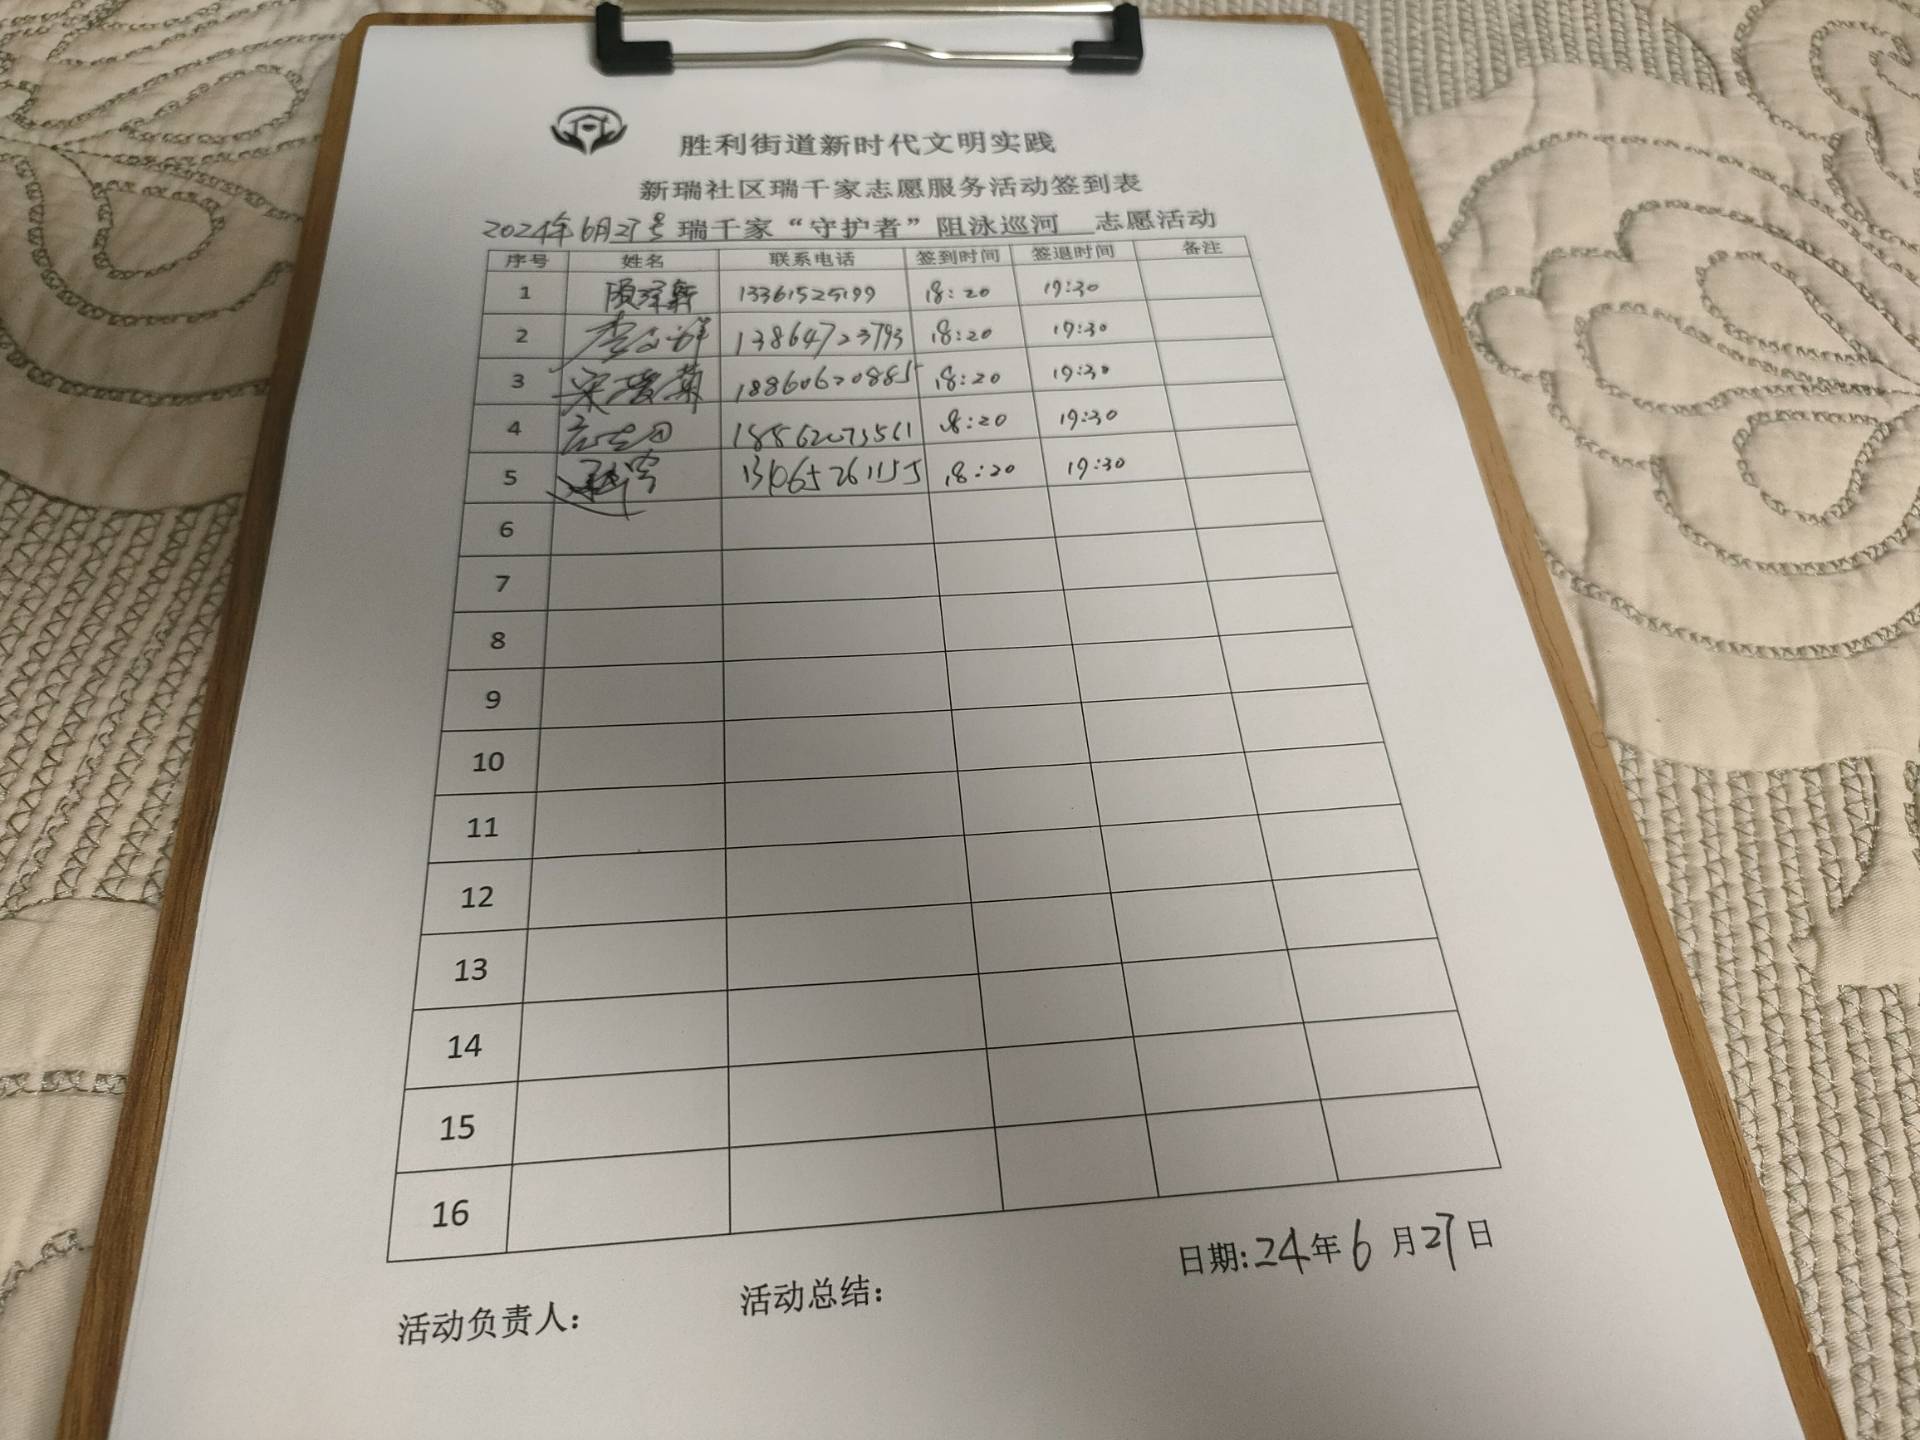 胜利街道新时代文明实践
新瑞社区瑞千家志愿服务活动签到表
2024年6月27号 瑞千家“守护者”阻泳巡河 志愿活动
序号 姓名 联系电话 签到时间 签退时间 备注
1 13361525199 18:20 19:30
2 13864723793 18:20 19:30
3 18860620885 18:20 19:30
4 18:20 19:30
5 18:20 19:30
6
7
8
9
10
11
12
13
14
15
16
日期:24年6月27日
活动负责人： 活动总结：